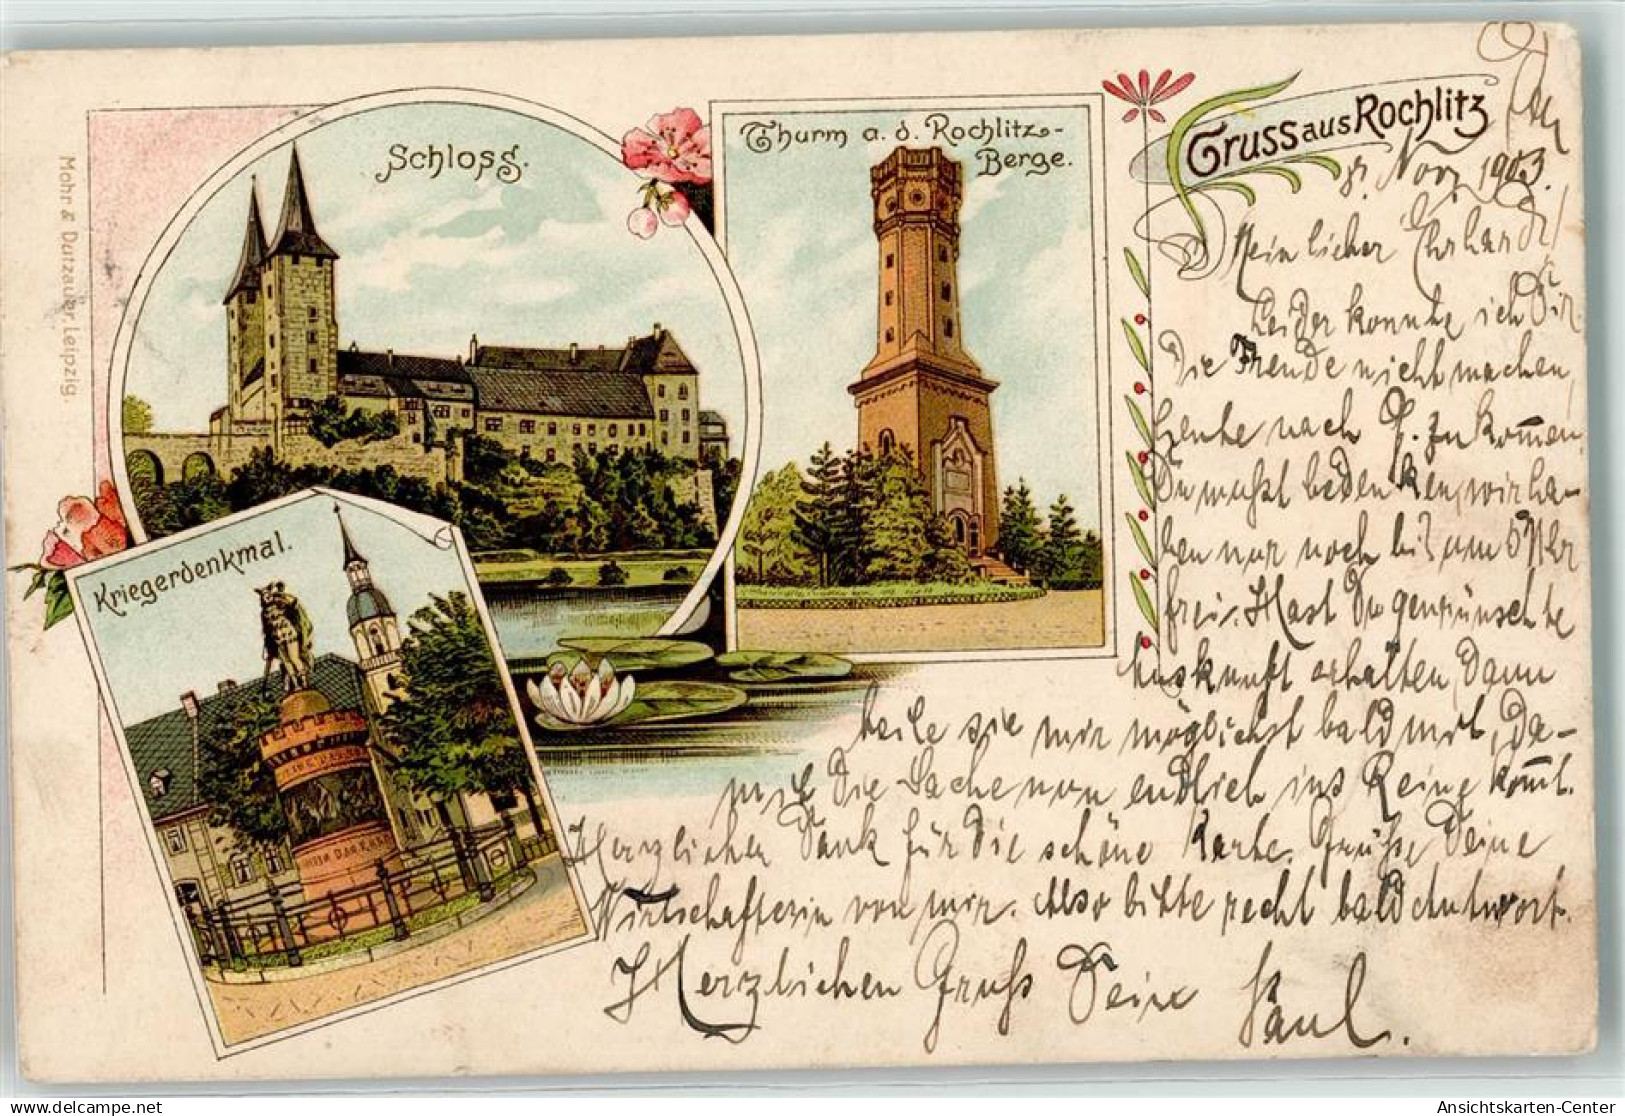 Mohr & Dutzauer, Leipzig.
Schloss.
Thurm a. d. Rochlitz-
Berge.
Gruss aus Rochlitz
Kriegerdenkmal.
8. Nov. 1903.
Mein lieber Ehrhard!
Leider konnte ich Dir
die Freude nicht machen,
heute nach G. zu kom̅en.
Du mußt bedenken, wir ha-
ben nur noch bis um 5 Uhr
frei. Hast Du gewünschte
Auskunft erhalten, dann
teile sie mir möglichst bald mit, da-
mit die Sache nun endlich ins Reine kom̅t.
Herzlichen Dank für die schöne Karte. Grüße Deine
Wirtschafterin von mir. Also bitte recht bald Antwort.
Herzlichen Gruß Dein Paul.
Ansichtskarten-Center